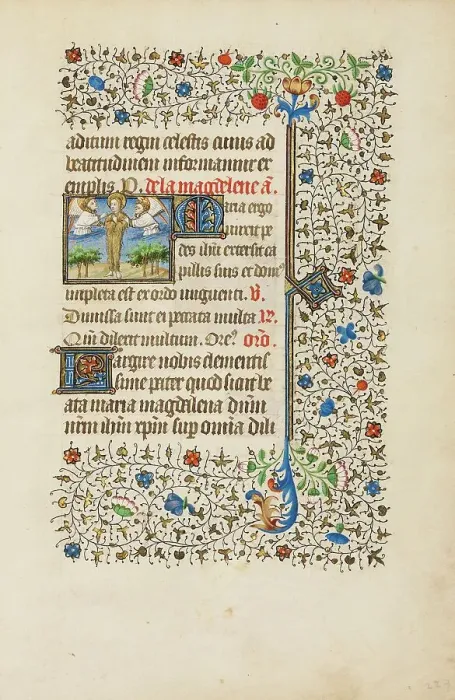 aditum regni celestis cuius ad
beatitudinem informamur ex
emplis. P. de la magdelene añ.
Maria ergo
unxit pe
des ihu extersit ca
pillis suis et domꝰ
impleta est ex odo unguenti. V.
Dimissa sunt ei peccata multa R.
Qm̄ dilexit multum. Oreꝰ. oro.
Largire nobis clementis
sime pater quod sicut be
ata maria magdalena dnm̄
nr̄m ihm̄ xpm̄ sup omnia dili